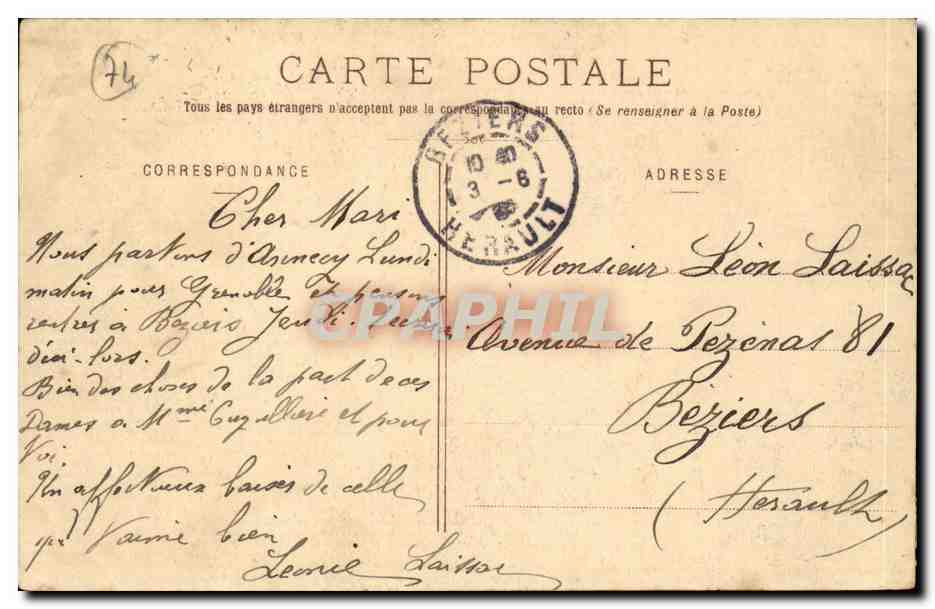 74
CARTE POSTALE
Tous les pays étrangers n'acceptent pas la correspondance au recto (Se renseigner à la Poste)
BEZIERS
10 40
3 - 6
HERAULT
CORRESPONDANCE
Cher Mari
Nous partons d'Annecy Lundi
matin pour Grenoble et pensons
rentrer à Beziers Jeudi.
d'ici-lors.
Bien des choses de la part de ces
Dames a Mme et pour
Toi.
Un affectueux baiser de celle
qui t'aime bien
Leonie Laissac
ADRESSE
Monsieur Léon Laissac
Avenue de Pezénas 81
Béziers
(Herault)
CPAPHIL